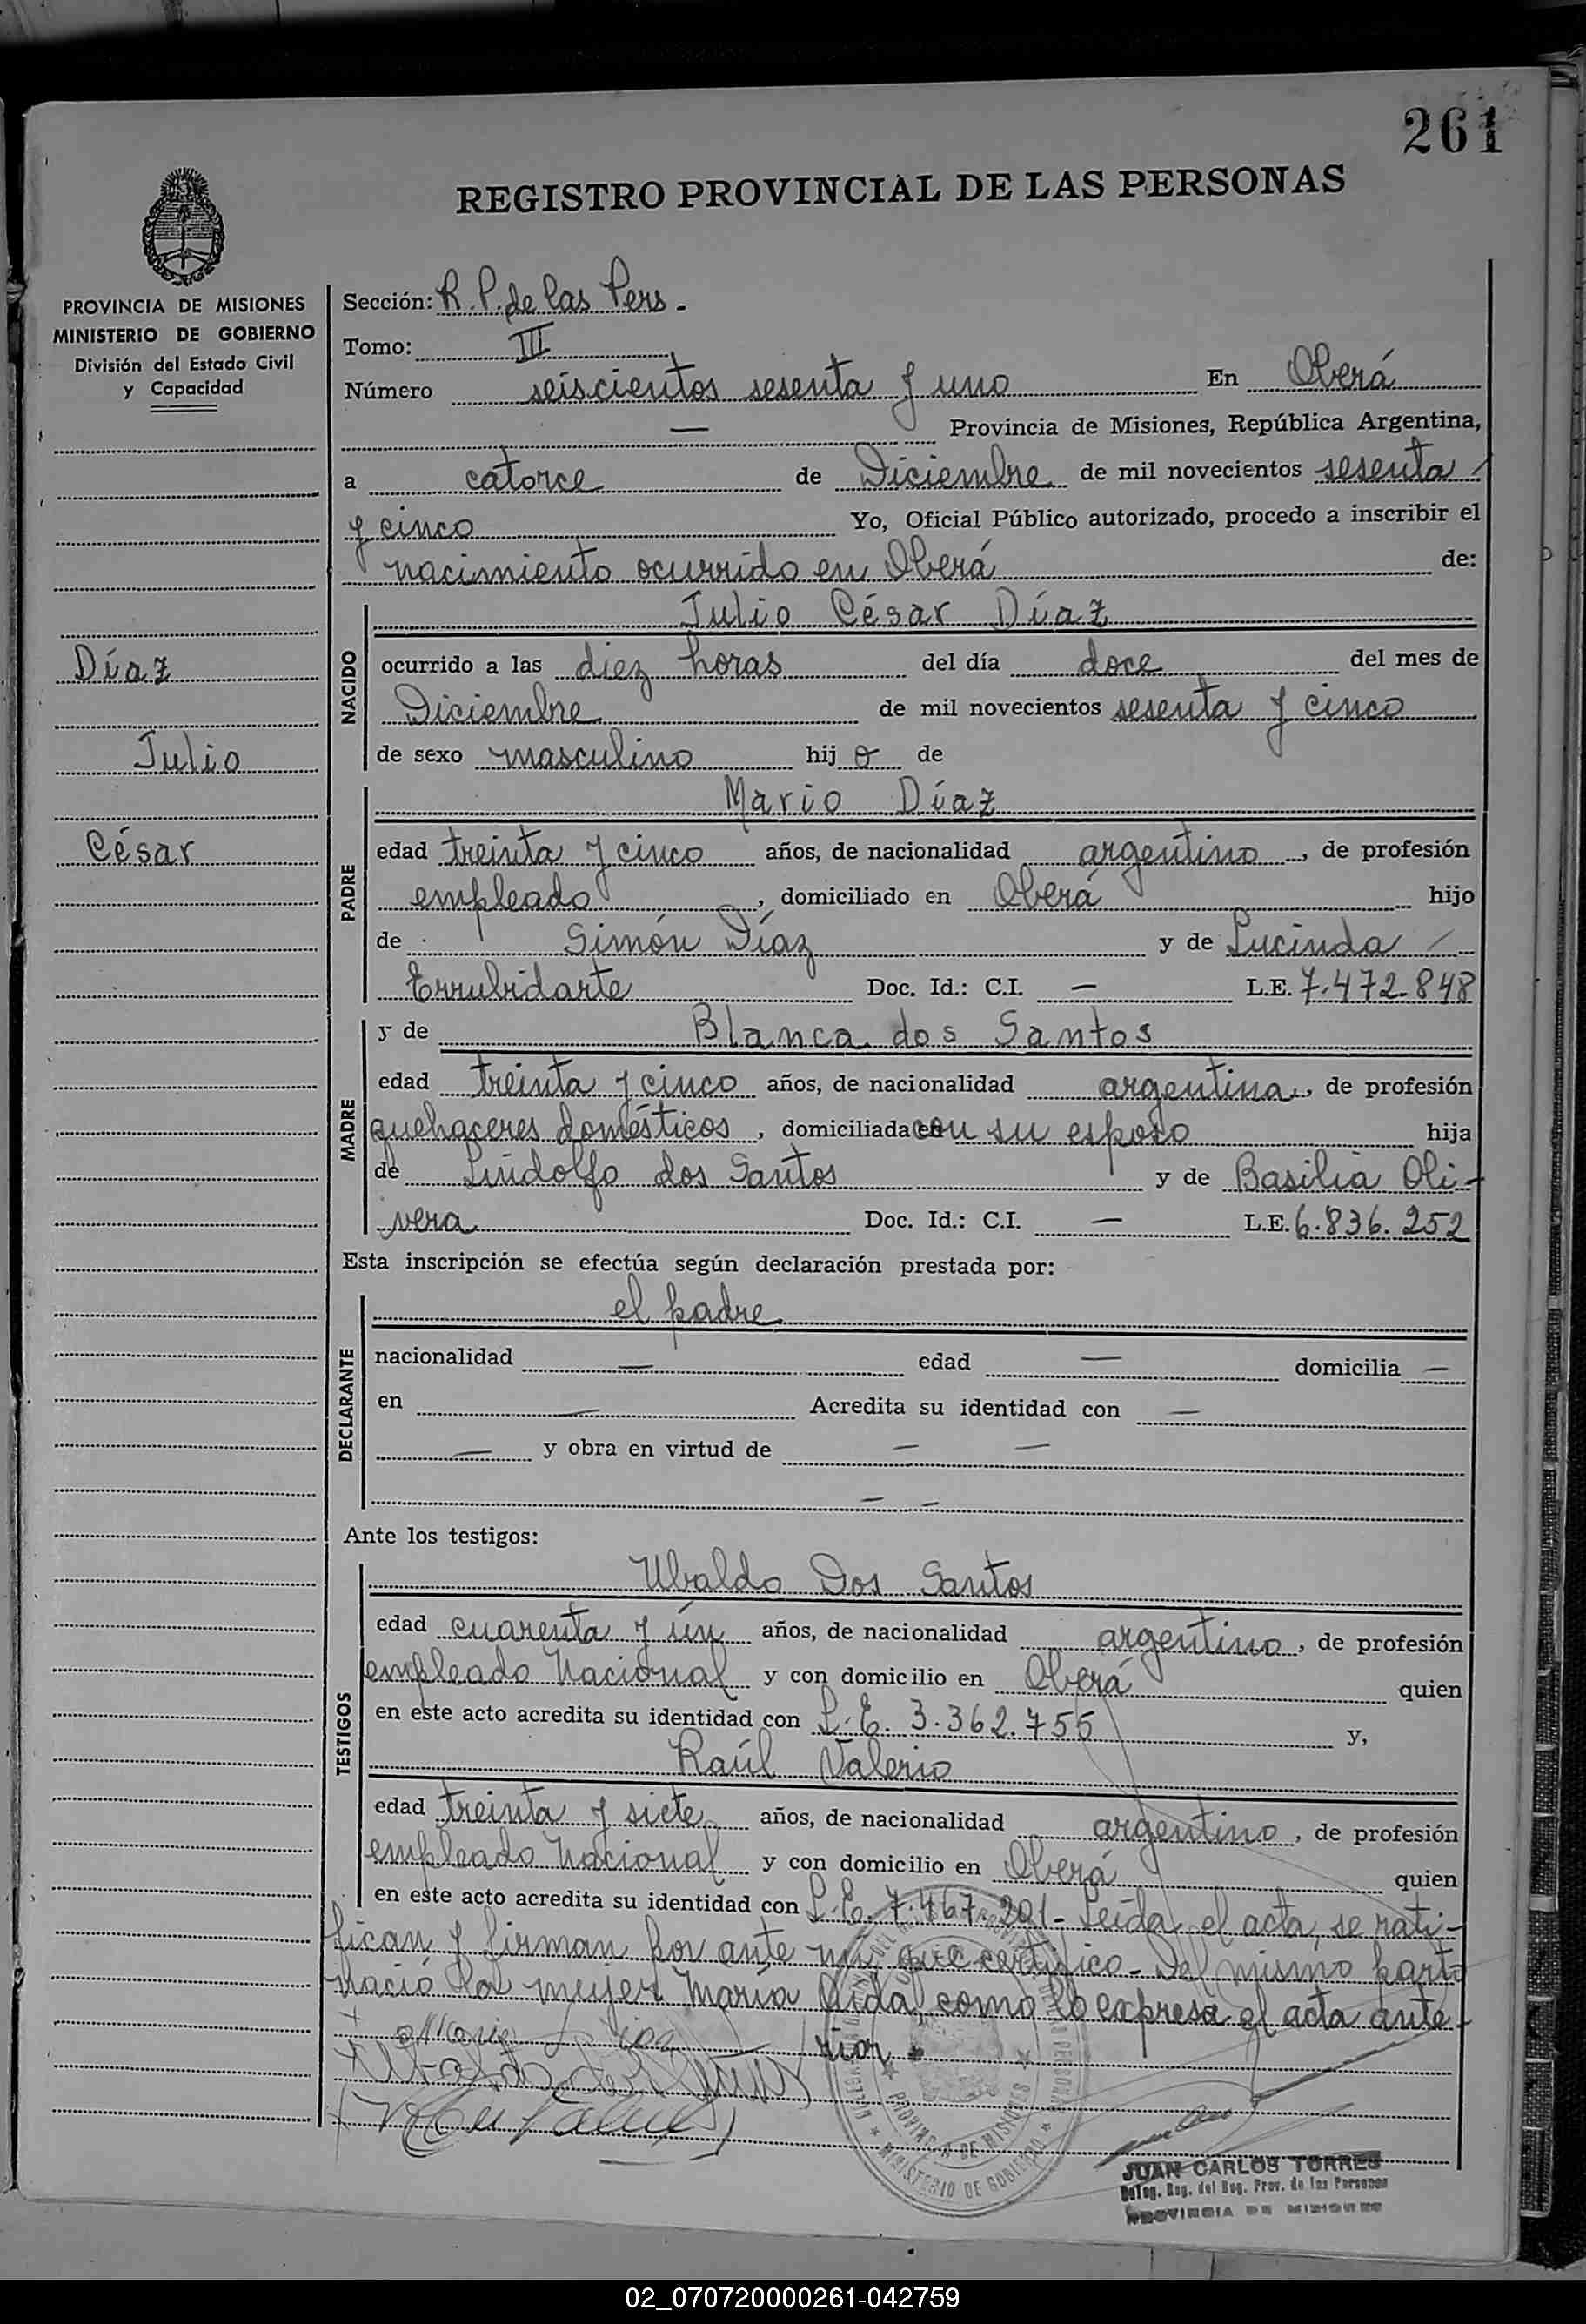 261
REGISTRO PROVINCIAL DE LAS PERSONAS
PROVINCIA DE MISIONES
MINISTERIO DE GOBIERNO
División del Estado Civil
y Capacidad
Díaz
Julio
César
Sección: R. P. de las Pers.-
Tomo: III
Número seiscientos sesenta y uno En Oberá
— Provincia de Misiones, República Argentina,
a catorce de Diciembre de mil novecientos sesenta
y cinco Yo, Oficial Público autorizado, procedo a inscribir el
nacimiento ocurrido en Oberá de:
NACIDO
Julio César Díaz
ocurrido a las diez horas del día doce del mes de
Diciembre de mil novecientos sesenta y cinco
de sexo masculino hijo de
PADRE
Mario Díaz
edad treinta y cinco años, de nacionalidad argentino, de profesión
empleado, domiciliado en Oberá hijo
de Simón Díaz y de Lucinda
Errubidarte Doc. Id.: C.I. — L.E. 7.472.848
MADRE
y de Blanca dos Santos
edad treinta y cinco años, de nacionalidad argentina, de profesión
quehaceres domésticos, domiciliada con su esposo hija
de Lindolfo dos Santos y de Basilia Oli-
vera Doc. Id.: C.I. — L.E. 6.836.252
Esta inscripción se efectúa según declaración prestada por:
DECLARANTE
el padre
nacionalidad — edad — domicilia —
en — Acredita su identidad con —
— y obra en virtud de — —
— —
Ante los testigos:
TESTIGOS
Ubaldo Dos Santos
edad cuarenta y ún años, de nacionalidad argentino, de profesión
empleado Nacional y con domicilio en Oberá quien
en este acto acredita su identidad con L.E. 3.362.755 y,
Raúl Valerio
edad treinta y siete años, de nacionalidad argentino, de profesión
empleado Nacional y con domicilio en Oberá quien
en este acto acredita su identidad con L.E. 7.467.201- Leída el acta, se rati-
fican y firman por ante mí, que certifico- Del mismo parto
nació la mujer María Aida como lo expresa el acta ante-
rior
PROVINCIA DE MISIONES
MINISTERIO DE GOBIERNO
JUAN CARLOS TORRES
Deleg. Reg. del Reg. Prov. de las Personas
PROVINCIA DE MISIONES
02_070720000261-042759